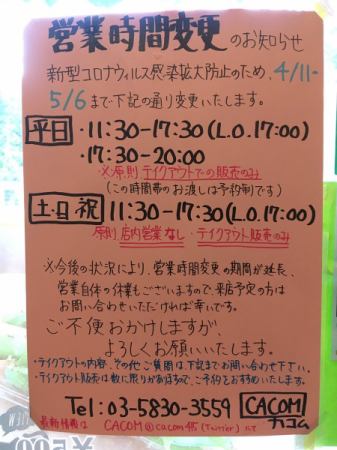 営業時間変更のお知らせ
新型コロナウィルス感染拡大防止のため、4/11-
5/6まで下記の通り変更いたします。
平日・11:30-17:30(L.O.17:00)
・17:30-20:00
※原則テイクアウトでの販売のみ
(この時間帯のお渡しは予約制です)
土・日・祝 11:30-17:30(L.O.17:00)
原則店内営業なし・テイクアウト販売のみ
※今後の状況により、営業時間変更の期間が延長、
営業自体の休業もございますので、来店予定の方は
お問い合わせいただければ幸いです。
ご不便おかけしますが、
よろしくお願いいたします。
・テイクアウトの内容、その他ご質問は下記までお問い合わせ下さい。
・テイクアウト販売は数に限りがありますので、ご予約をおすすめいたします。
Tel:03-5830-3559 CACOM
カコム
最新情報は CACOM@cacom45(Twitter)にて